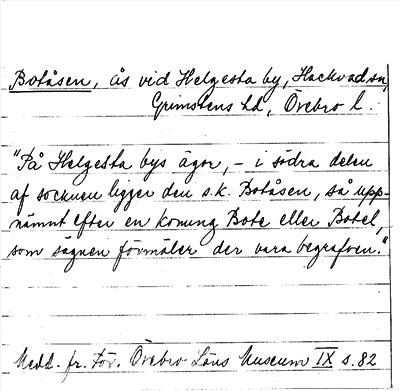 Botåsen, ås vid Helgesta by, Hackvad sn,
Grimstens hd, Örebro l.
"På Helgesta bys ägor, – i södra delen
af socknen ligger den s.k. Botåsen, så upp-
nämnt efter en konung Bote eller Botel,
som sägnen förmäler der vara begrafven."
Medd. fr. För. Örebro Läns Museum IX s. 82